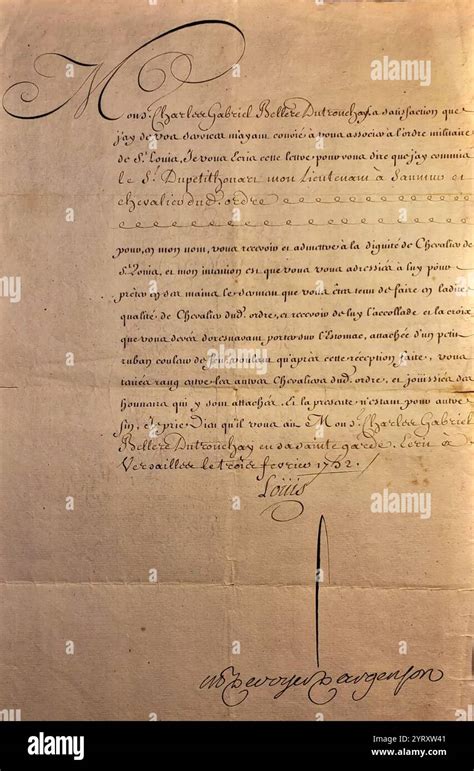 Mons. Charles Gabriel Bellere Dutronchay, la satisfaction que
j'ay de vos services m'ayant convié à vous associer à l'ordre militaire
de St. Louis, Je vous Ecris cette lettre pour vous dire que j'ay commis
le Sr. Dupetitthouars mon Lieutenant à Saumur et
chevalier dud. ordre
pour, en mon nom, vous recevoir et admettre à la dignité de Chevalier de
St. Louis, et mon intention est que vous vous adressiés à luy pour
prêter en ses mains le serment que vous êtes tenu de faire en lad.
qualité de Chevalier dud. ordre, et recevoir de luy l'accollade et la croix
que vous devés doresnavant porter sur l'Estomac, attachée d'un petit
ruban couleur de feu; voulant qu'après cette réception faite, vous
teniés rang entre les autres Chevaliers dud. ordre, et joüissiés des
honneurs qui y sont attachés. Et la presente n'estant pour autre
fin, Je prie Dieu qu'il vous ait Mons. Charles Gabriel
Bellere Dutronchay en sa sainte garde. Ecrit à
Versailles le trois fevrier 1752.
Loüis
M. P. de voyer d'argenson
a
alamy
Image ID: 2YRXW41
www.alamy.com